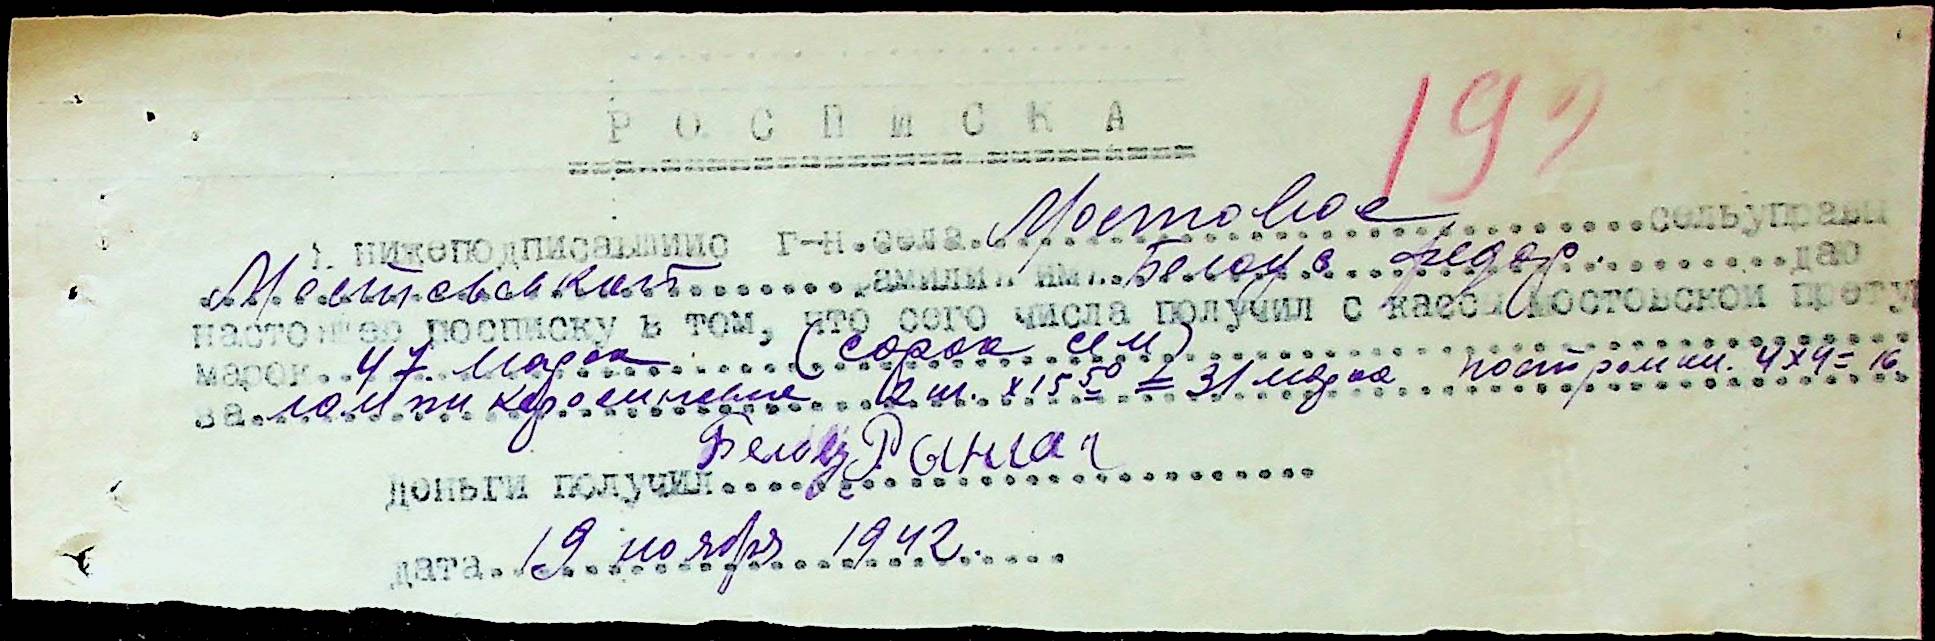 РОСПИСКА
192
Я нижеподписавшийс г-н.села Мостовое сельуправы
Мостовской фамилия имя Белоус Федор. даю
настоящую росписку в том, что сего числа получил с кассы Мостовской прету
марок 47 марок (сорок сем)
за лампи керосинове 2 шт. х 15 50 = 31 марка постромки. 4х4= 16
деньги получил Белоус
дата 19 ноября 1942.